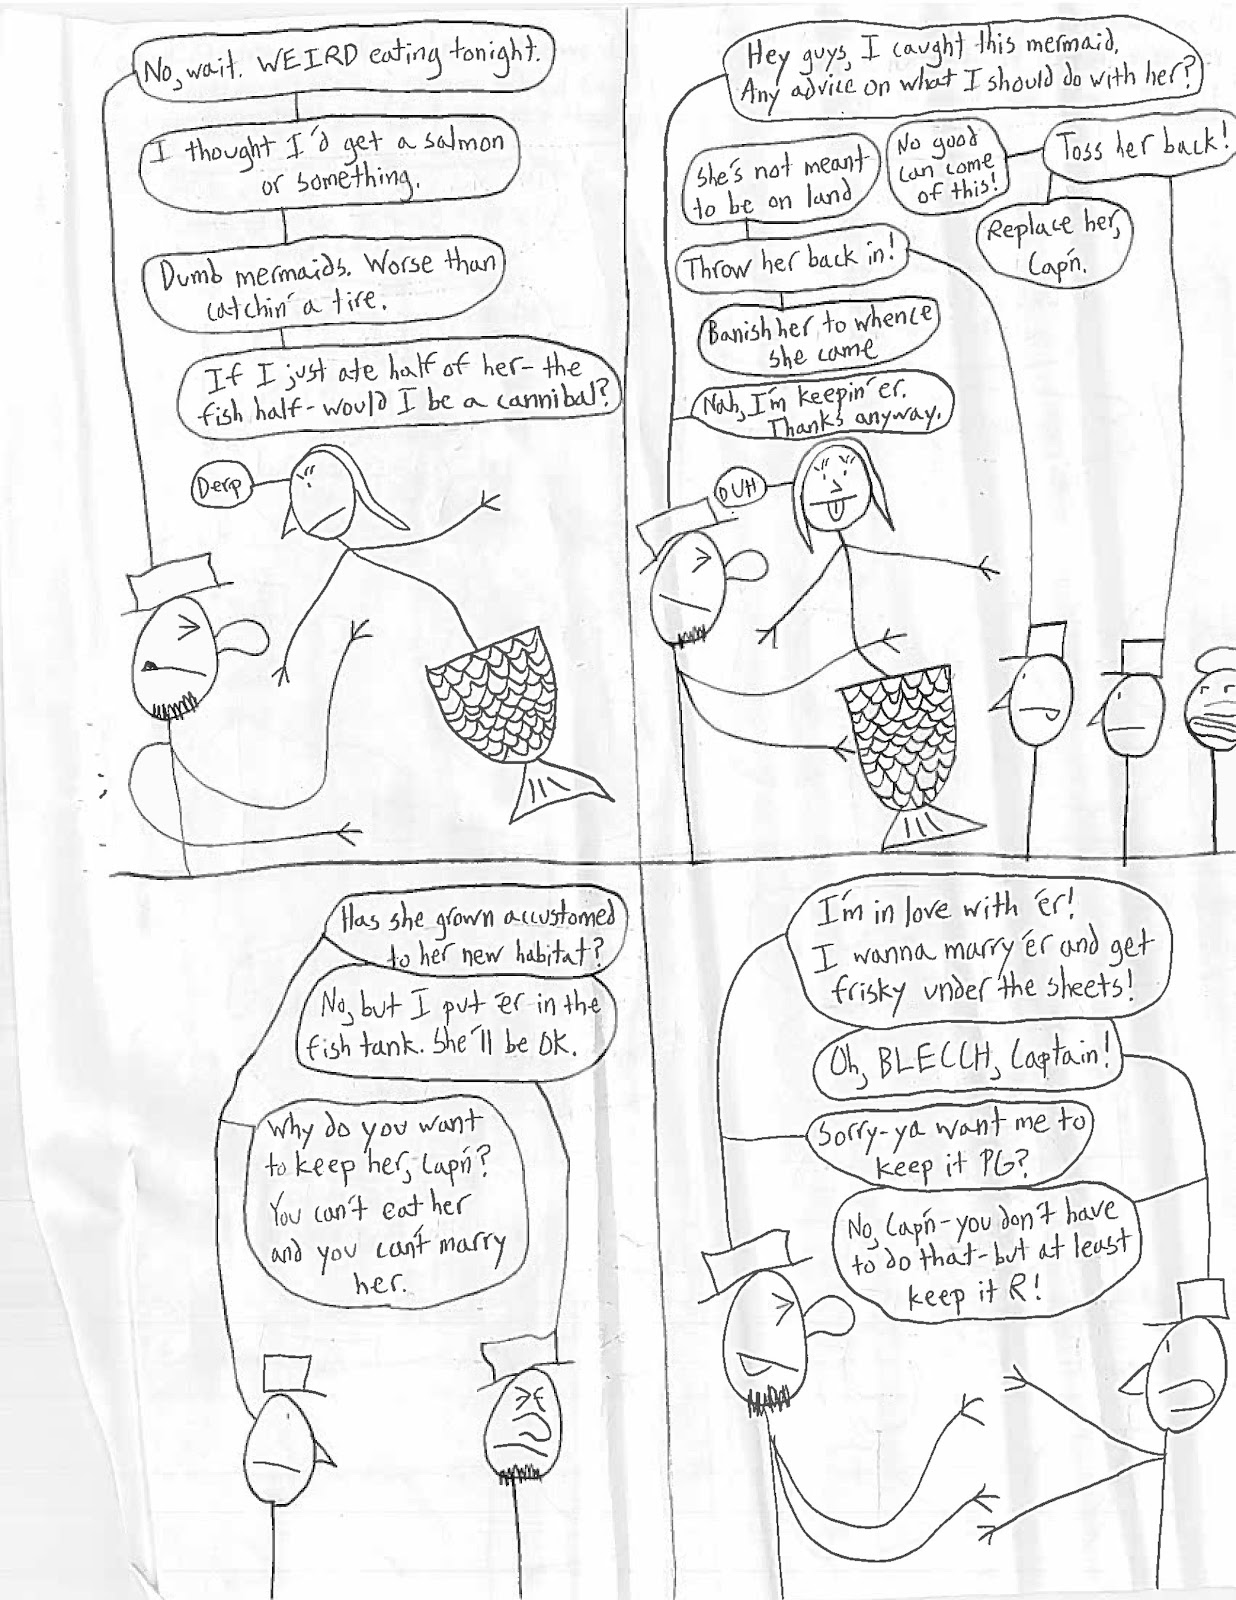 No, wait. WEIRD eating tonight.
I thought I'd get a salmon
or something.
Dumb mermaids. Worse than
catchin' a tire.
If I just ate half of her- the
fish half- would I be a cannibal?
Derp
Hey guys, I caught this mermaid.
Any advice on what I should do with her?
She's not meant
to be on land
No good
can come
of this!
Toss her back!
Replace her,
Cap'n.
Throw her back in!
Banish her to whence
she came
Nah, I'm keepin' er.
Thanks anyway.
DUH
Has she grown accustomed
to her new habitat?
No, but I put 'er in the
fish tank. She'll be OK.
Why do you want
to keep her, Cap'n?
You can't eat her
and you can't marry
her.
I'm in love with 'er!
I wanna marry 'er and get
frisky under the sheets!
Oh, BLECCH, Captain!
Sorry-ya want me to
keep it PG?
No, Cap'n-you don't have
to do that-but at least
keep it R!